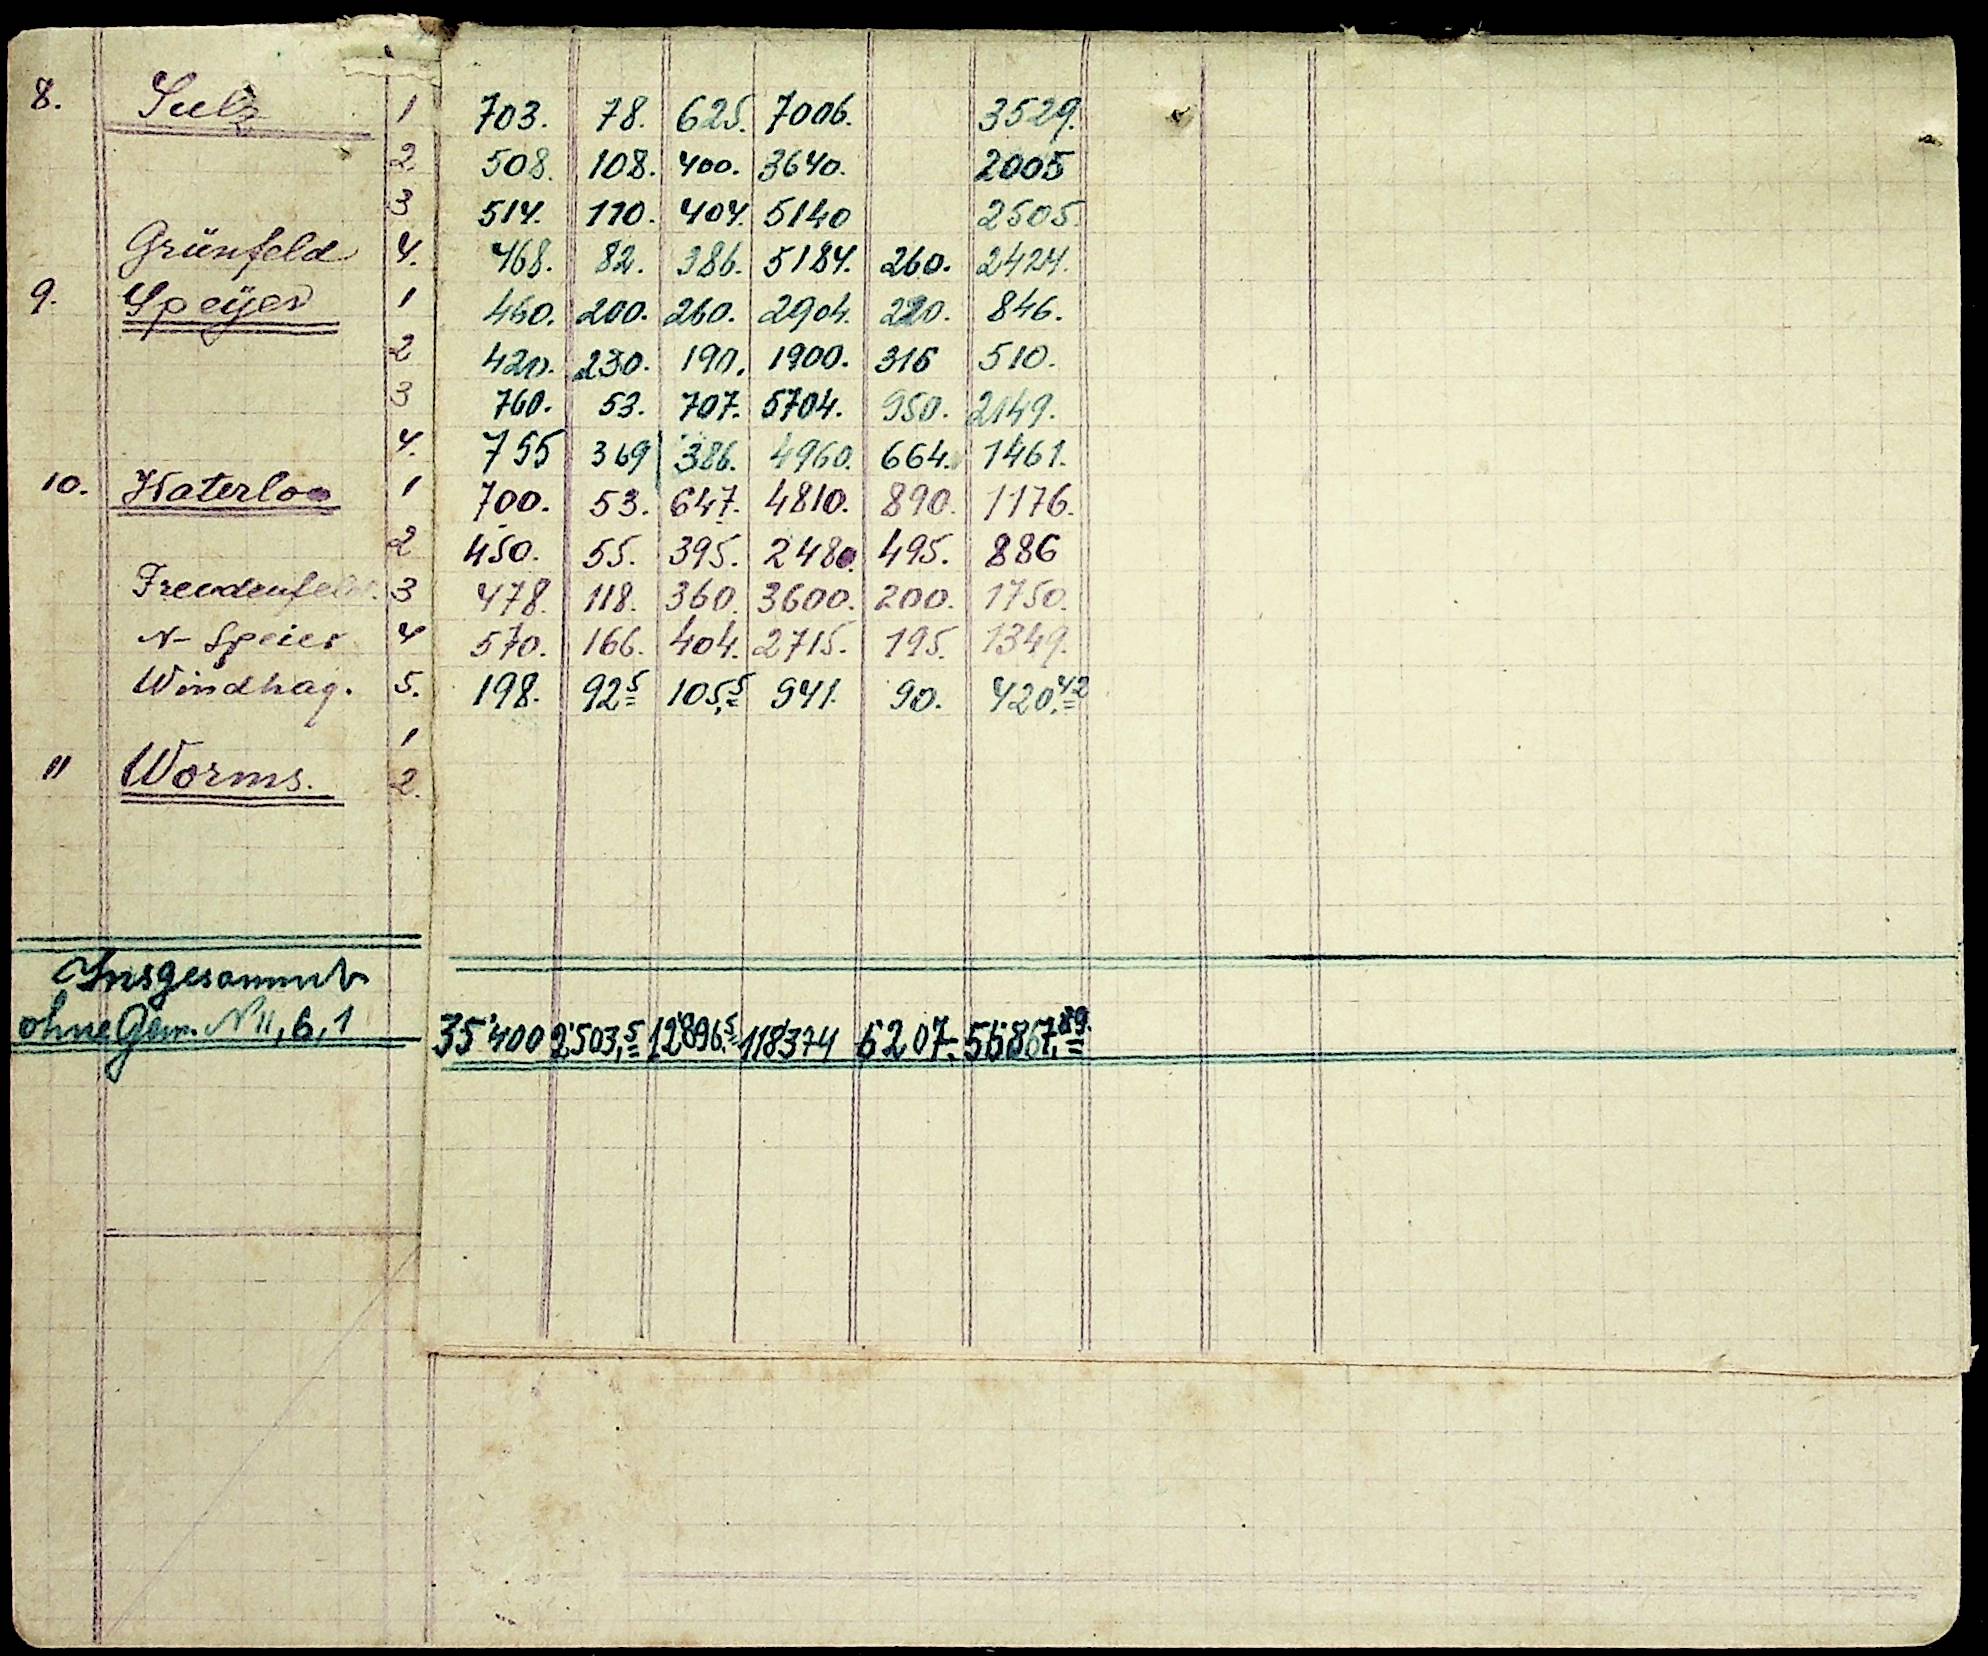 8. Sulz 1 703. 78. 625. 7006. 3529.
2 508. 108. 400. 3640. 2005
3 514. 110. 404. 5140 2505.
Grünfeld 4. 468. 82. 386. 5184. 260. 2424.
9. Speÿer 1 460. 200. 260. 2904. 220. 846.
2 420. 230. 190. 1900. 316 510.
3 760. 53. 707. 5704. 950. 2149.
4. 755 369 386. 4960. 664. 1461.
10. Waterloo 1 700. 53. 647. 4810. 890. 1176.
2 450. 55. 395. 2480. 495. 886
Freudenfeld. 3 478. 118. 360. 3600. 200. 1750.
N- Speier 4 570. 166. 404. 2715. 195. 1349.
Windhag. 5. 198. 92,5 105,5 941. 90. 420,42
1
11 Worms. 2.
Insgesammt
ohne Gem. N 11, 6, 1 35'400 2'503,5 12'896,5 118'374 6207. 56867,89.